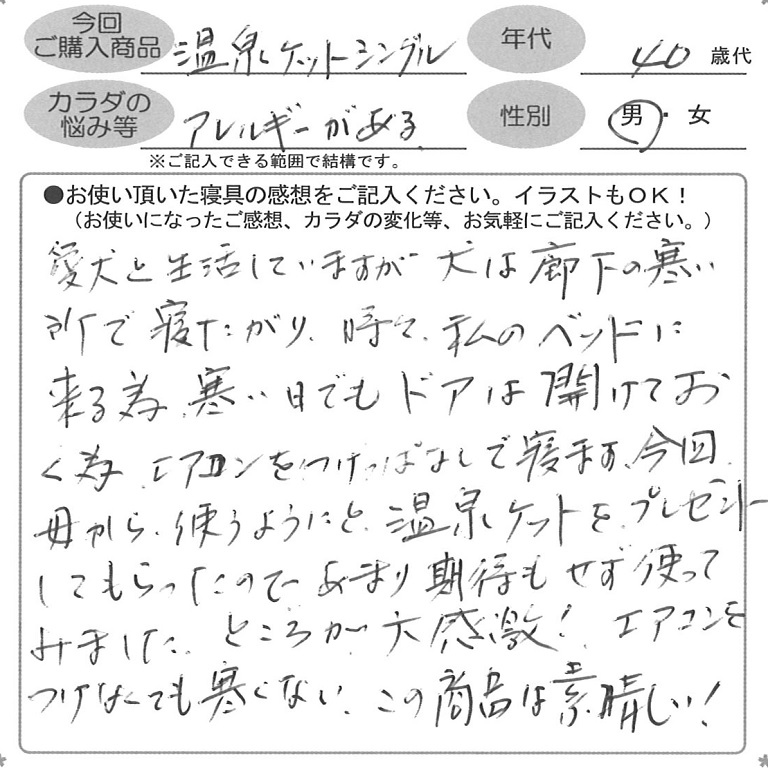 今回
ご購入商品 温泉ケットシングル 年代 40 歳代
カラダの
悩み等 アレルギーがある 性別 男・女
※ご記入できる範囲で結構です。
●お使い頂いた寝具の感想をご記入ください。イラストもOK！
（お使いになったご感想、カラダの変化等、お気軽にご記入ください。）
愛犬と生活していますが犬は廊下の寒い
所で寝たがり、時々、私のベッドに
来る為、寒い日でもドアは開けてお
く為、エアコンをつけっぱなしで寝ます。今回、
母から、使うようにと、温泉ケットを、プレゼント
してもらったので、あまり期待もせず使って
みました。ところが大感激！エアコンを
つけなくても寒くない。この商品は素晴しい！